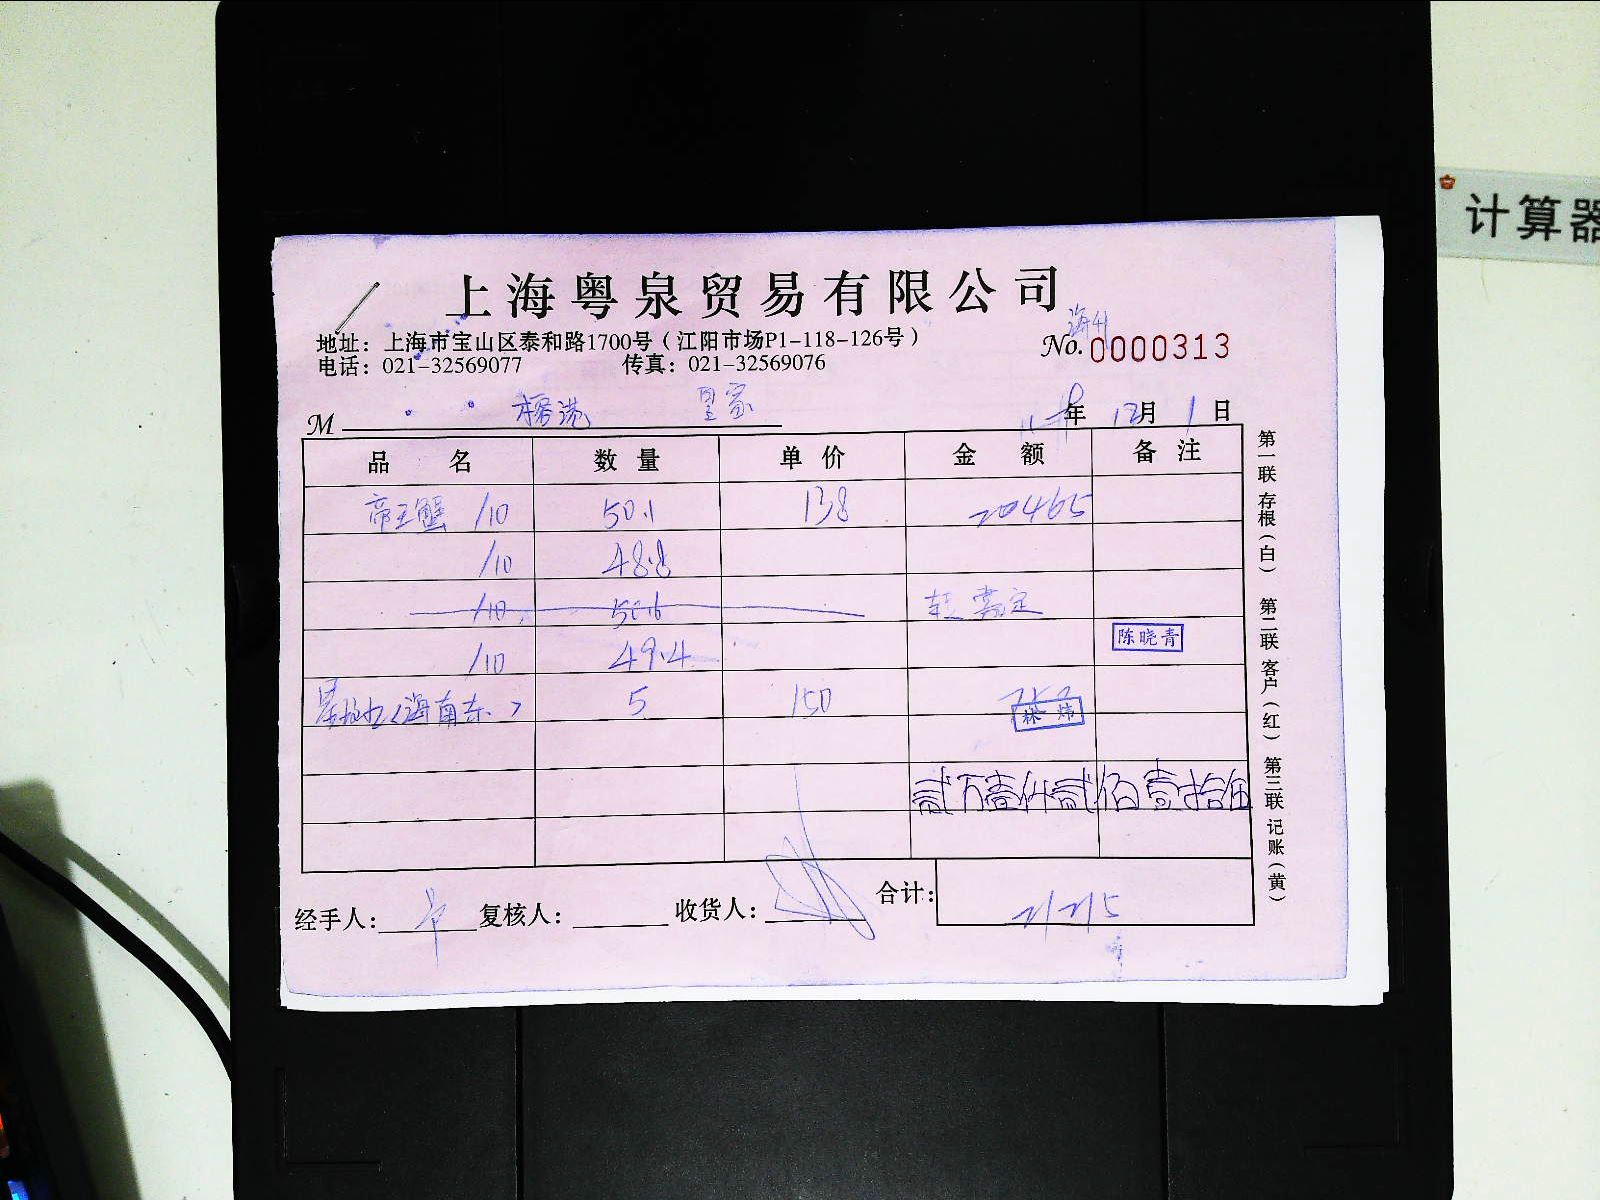 计算器
上海粤泉贸易有限公司
地址：上海市宝山区泰和路1700号（江阳市场P1-118-126号）
No. 0000313
电话：021-32569077 传真：021-32569076
M 皇家
年 12月 1日
品名 数量 单价 金额 备注
帝王蟹 /10 50.1 138 20465
/10 48.8
/10 50.6 转嘉定
/10 49.4
陈晓青
(海南东) 5 150
林炜
贰万壹仟贰佰壹拾伍
合计：21215
经手人： 复核人： 收货人：
第一联 存根（白） 第二联 客户（红） 第三联 记账（黄）